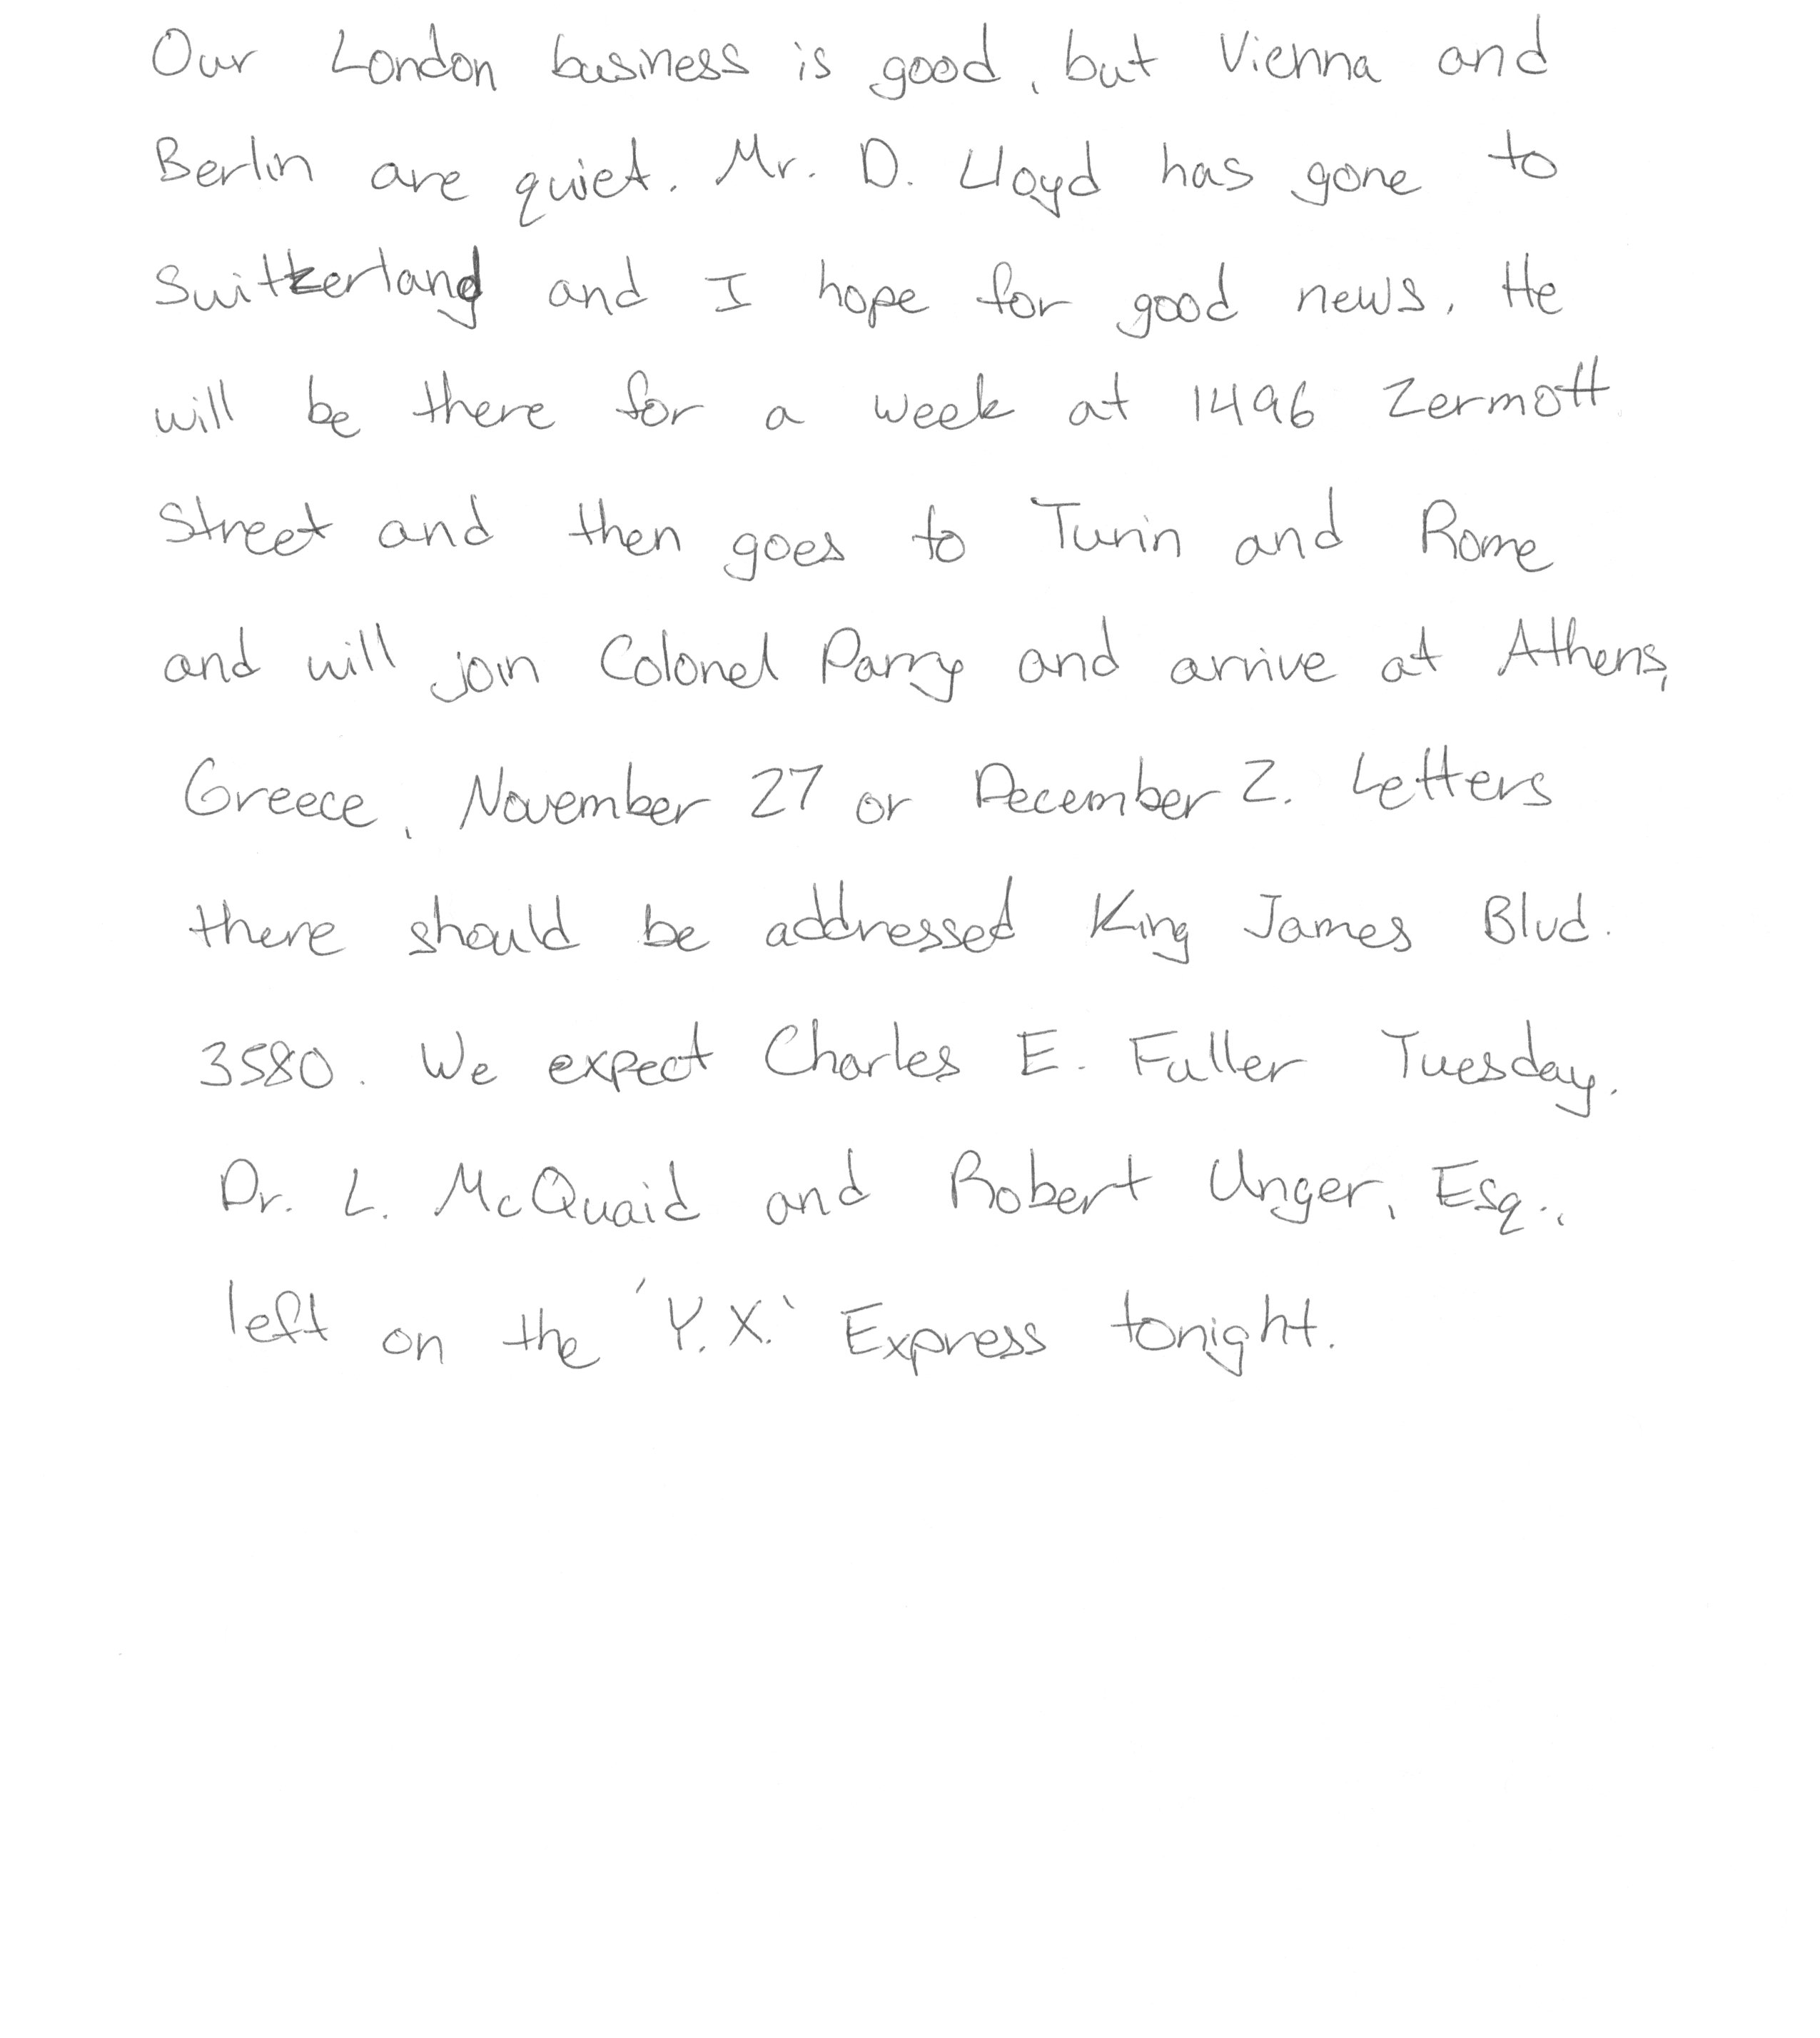 Our London business is good, but Vienna and
Berlin are quiet. Mr. D. Lloyd has gone to
Switzerland and I hope for good news. He
will be there for a week at 1496 Zermott
Street and then goes to Turin and Rome
and will join Colonel Parry and arrive at Athens,
Greece, November 27 or December 2. Letters
there should be addressed King James Blvd.
3580. We expect Charles E. Fuller Tuesday.
Dr. L. McQuaid and Robert Unger, Esq.,
left on the 'Y.X.' Express tonight.